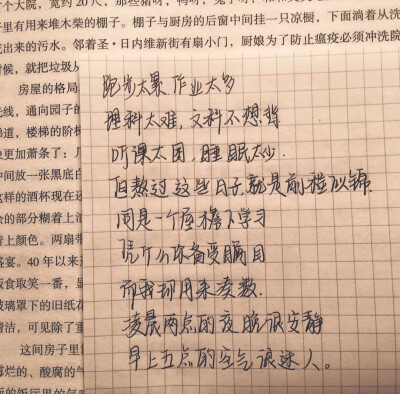 个大院，宽约20尺，那些猪呀
子里有用来堆木柴的棚子。棚子与厨房的后窗中间挂一只凉橱，下面淌着从洗
出来的污水。邻着圣·日内维新街有扇小门，厨娘为了防止瘟疫必须冲洗院
时候，就把垃圾从
房屋的格局
光线，通向园子的
梯道，楼梯的阶梯
更加萧条了：
中间放一张黑底白
这样的酒杯现在还
余的部分糊着上
着上颜色。两扇带
盛宴。40年以来
饭食取笑一番，显
玻璃罩下的旧纸花
清洁，可见除了重
这间房子里
霉烂的、酸腐的气
跑步太累 作业太多
理科太难，文科不想背
听课太困，睡眠太少.
但熬过这些日子就是前程似锦
同是一个屋檐下学习
凭什么你备受瞩目
而我却用来凑数.
凌晨两点的夜晚很安静
早上五点的空气很迷人。